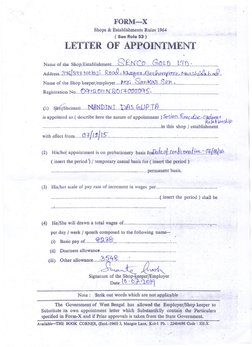 FORM—X
Shops & Establishments Rules 1964
( See Rule 53 )
LETTER OF APPOINTMENT
Name of the Shop/Establishment SENCO GOLD LTD.
Address
Name of the Shop keeper/employer Mr. Sankar Sen.
Registration No.
(1) Shri/Shrimati NANDINI DASGUPTA
is appointed as ( describe here the nature of appointment ) Sales Executive Customer Relationship
in this shop / establishment
with effect from
(2) His/her appointment is on probationary basis for
( insert the period ) / temporary casual basis for ( insert the period )
permanent basis.
(3) His/her scale of pay rate of increment to wages per
( insert the period ) shall be
(4) He/She will draw a total wages of
per day / week / month composed to the following name—
(i) Basic pay of 9278
(ii) Dearness allowance
(iii) Other allowance 3548
Signature of the Shop-keeper/Employer
Date
Note : Strike out words which are not applicable
The Government of West Bengal has allowed the Employer/Shop keeper to
Substitute in own appointment letter which Substantially contain the Particulars
specified in Form-X and if Prior approvals is taken from the State Government.
Available—THE BOOK CORNER,